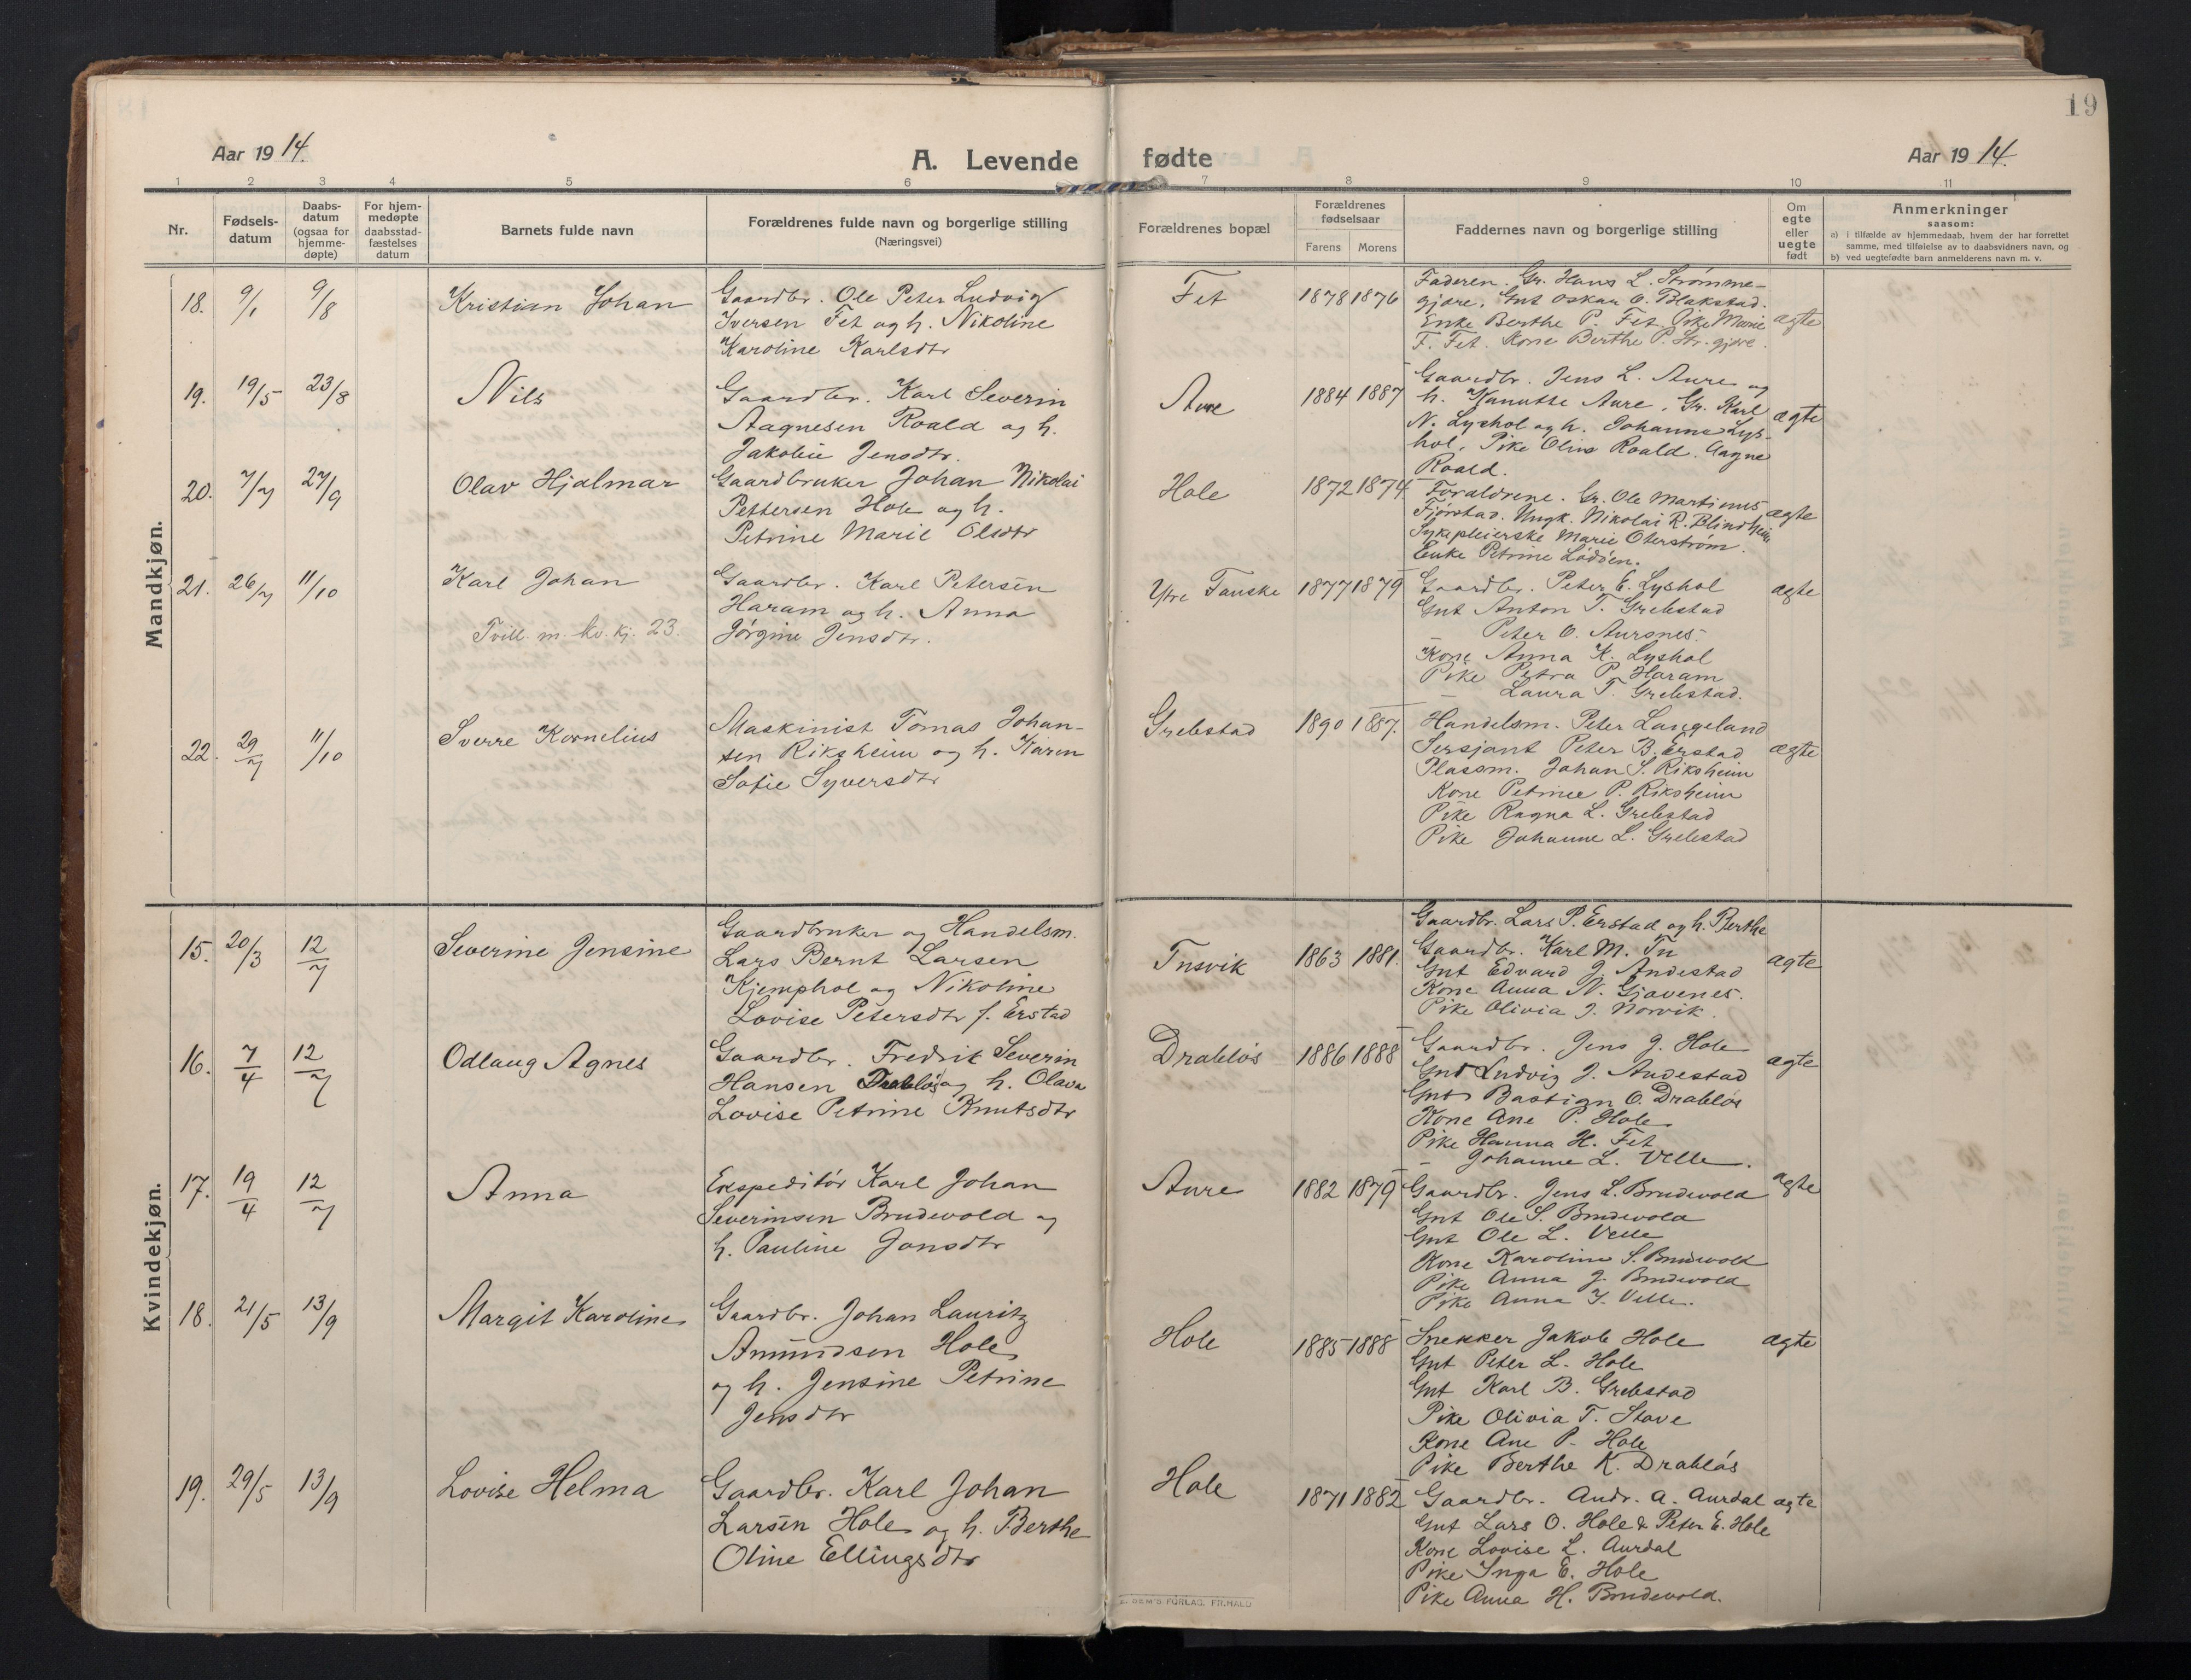 19
Aar 1914.
A. Levende fødte
Aar 1914.
1 2 3 4 5 6 7 8 9 10 11
Nr.
Fødsels-
datum
Daabs-
datum
(ogsaa for
hjemme-
døpte)
For hjem-
medøpte
daabsstad-
fæstelses
datum
Barnets fulde navn
Forældrenes fulde navn og borgerlige stilling
(Næringsvei)
Forældrenes bopæl
Forældrenes
fødselsaar
Farens Morens
Faddernes navn og borgerlige stilling
Om
egte
eller
uegte
født
Anmerkninger
saasom:
a) i tilfælde av hjemmedaab, hvem der har forrettet
samme, med tilføielse av to daabsvidners navn, og
b) ved uegtefødte barn anmelderens navn m. v.
Mandkjøn.
18. 9/1 9/8 Kristian Johan
Gaardbr. Ole Peter Ludvig
Iversen Fet og h. Nikoline
Karoline Karlsdtr
Fet 1878 1876
Faderen. Gr. Hans L. Strømme-
gjære. Gut Oskar O. Blakstad.
Enke Berthe P. Fet. Pike Marie
F. Fet. Kone Berthe P. Str.gjære.
ægte
19. 19/5 23/8 Nils
Gaardbr. Karl Severin
Aagnesen Roald og h.
Jakobie Jensdtr.
Aure 1884 1887
Gaardbr. Jens L. Aure og
h. Kanutte Aure. Gr. Karl
N. Lyshol og h. Johanne Lys-
hol. Pike Olina Roald. Aagne
Roald.
ægte
20. 7/7 27/9 Olav Hjalmar
Gaardbruker Johan Nikolai
Pettersen Hole og h.
Petrine Marie Olsdtr
Hole 1872 1874
Foraldrene. Gr. Ole Martinus
Fjørstad. Ungk. Nikolai R. Blindheim
Sykepleierske Marie Oterstrøm.
Enke Petrine Lødøen.
ægte
21. 26/7 11/10 Karl Johan
Tvill. m. kv. kj. 23.
Gaardbr. Karl Petersen
Haram og h. Anna
Jørgine Jensdtr.
Ytre Fauske 1877 1879
Gaardbr. Peter E. Lyshol
Gut Anton T. Grebstad
Peter O. Aursnes.
Kone Anna K. Lyshol
Pike Petra P. Haram
— Laura T. Grebstad.
ægte
22. 29/7 11/10 Sverre Kornelius
Maskinist Tomas Johan-
sen Riksheim og h. Karen
Sofie Syversdtr
Grebstad 1890 1887.
Handelsm. Peter Langeland
Sersjant Peter B. Erstad
Plassm. Johan S. Riksheim
Kone Petrine P. Riksheim
Pike Ragna L. Grebstad
Pike Johanne L. Grebstad
ægte
Kvindekjøn.
15. 20/3 12/7 Severine Jensine
Gaardbruker og Handelsm.
Lars Bernt Larsen
Kjemphol og Nikoline
Lovise Petersdtr f. Erstad
Tusvik 1863 1881.
Gaardbr. Lars P. Erstad og h. Berthe
Gaardbr. Karl M. Tu
Gut Edvard J. Andestad
Kone Anna N. Gjævenes.
Pike Olivia J. Norvik.
ægte
16. 7/4 12/7 Odlaug Agnes
Gaardbr. Fredrik Severin
Hansen Drabløs og h. Olava
Lovise Petrine Knutsdtr
Drabløs 1886 1888
Gaardbr. Jens J. Hole
Gut Ludvig J. Andestad
Gut Bastian O. Drabløs
Kone Ane P. Hole
Pike Hanna H. Fet
— Johanne L. Velle.
ægte
17. 19/4 12/7 Anna
Exspeditør Karl Johan
Severinsen Brudevold og
h. Pauline Jonsdtr
Aure 1882 1879
Gaardbr. Jens L. Brudevold
Gut Ole S. Brudevold
Gut Ole L. Velle
Kone Karoline S. Brudevold
Pike Anna J. Brudevold
Pike Anna I. Velle.
ægte
18. 21/5 13/9 Margit Karoline
Gaardbr. Johan Lauritz
Amundsen Hole
og h. Jensine Petrine
Jensdtr
Hole 1885 1888
Snekker Jakob Hole
Gut Peter L. Hole
Gut Karl B. Grebstad
Pike Olivia T. Stave
Kone Ane P. Hole
Pike Berthe K. Drabløs
ægte
19. 29/5 13/9 Lovise Helma
Gaardbr. Karl Johan
Larsen Hole og h. Berthe
Oline Ellingsdtr
Hole 1871 1882
Gaardbr. Andr. A. Aurdal
Gut Lars O. Hole & Peter E. Hole
Kone Lovise L. Aurdal
Pike Inga E. Hole
Pike Anna H. Brudevold.
ægte
FORLAG. FR. HALD